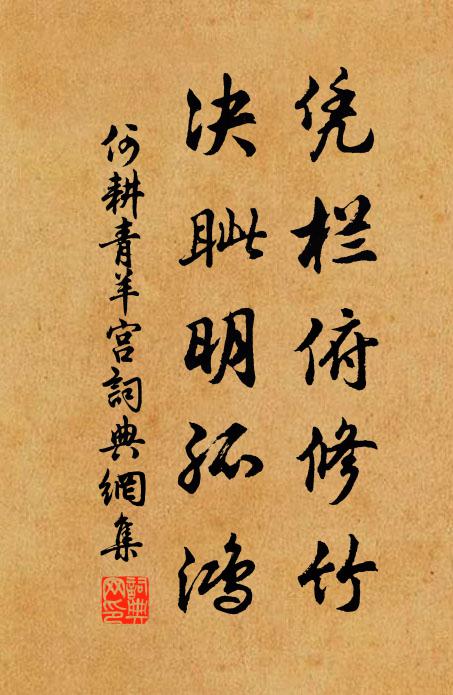 凭栏俯修竹
决眦明孤鸿
何耕青羊宫詞典網集
詞典网印